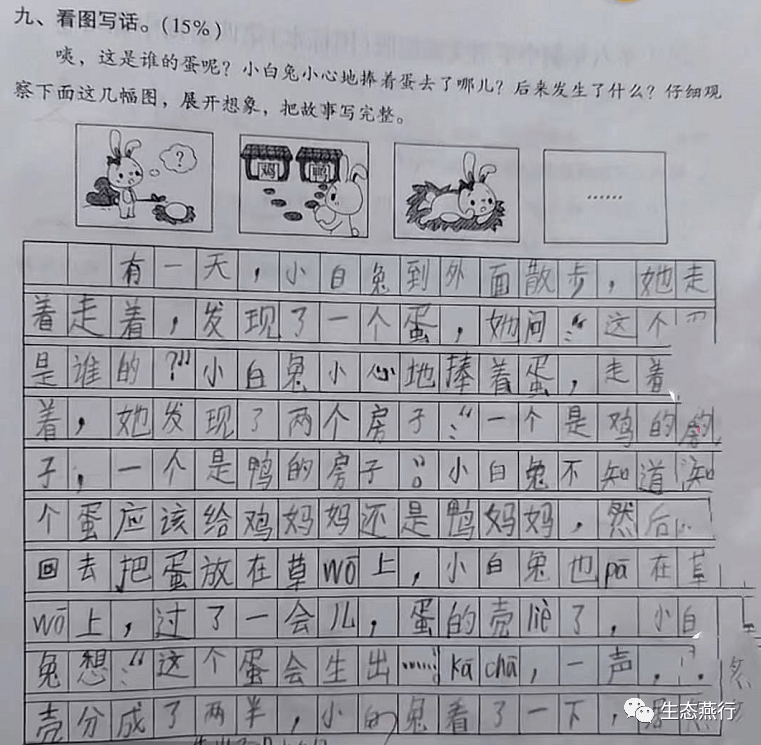 九、看图写话。(15%)
咦，这是谁的蛋呢？小白兔小心地捧着蛋去了哪儿？后来发生了什么？仔细观
察下面这几幅图，展开想象，把故事写完整。
? 鸡 鸭 ……
有一天，小白兔到外面散步，她走
着走着，发现了一个蛋，她问：“这个
是谁的？”小白兔小心地捧着蛋，走着
着，她发现了两个房子：“一个是鸡的房
子，一个是鸭的房子。”小白兔不知道
个蛋应该给鸡妈妈还是鸭妈妈，然后
回去把蛋放在草wō上，小白兔也pā在草
wō上，过了一会儿，蛋的壳liè了，小白
兔想：“这个蛋会生出……”kā chā，一声，
壳分成了两半，小的兔看了一下，
生态燕行